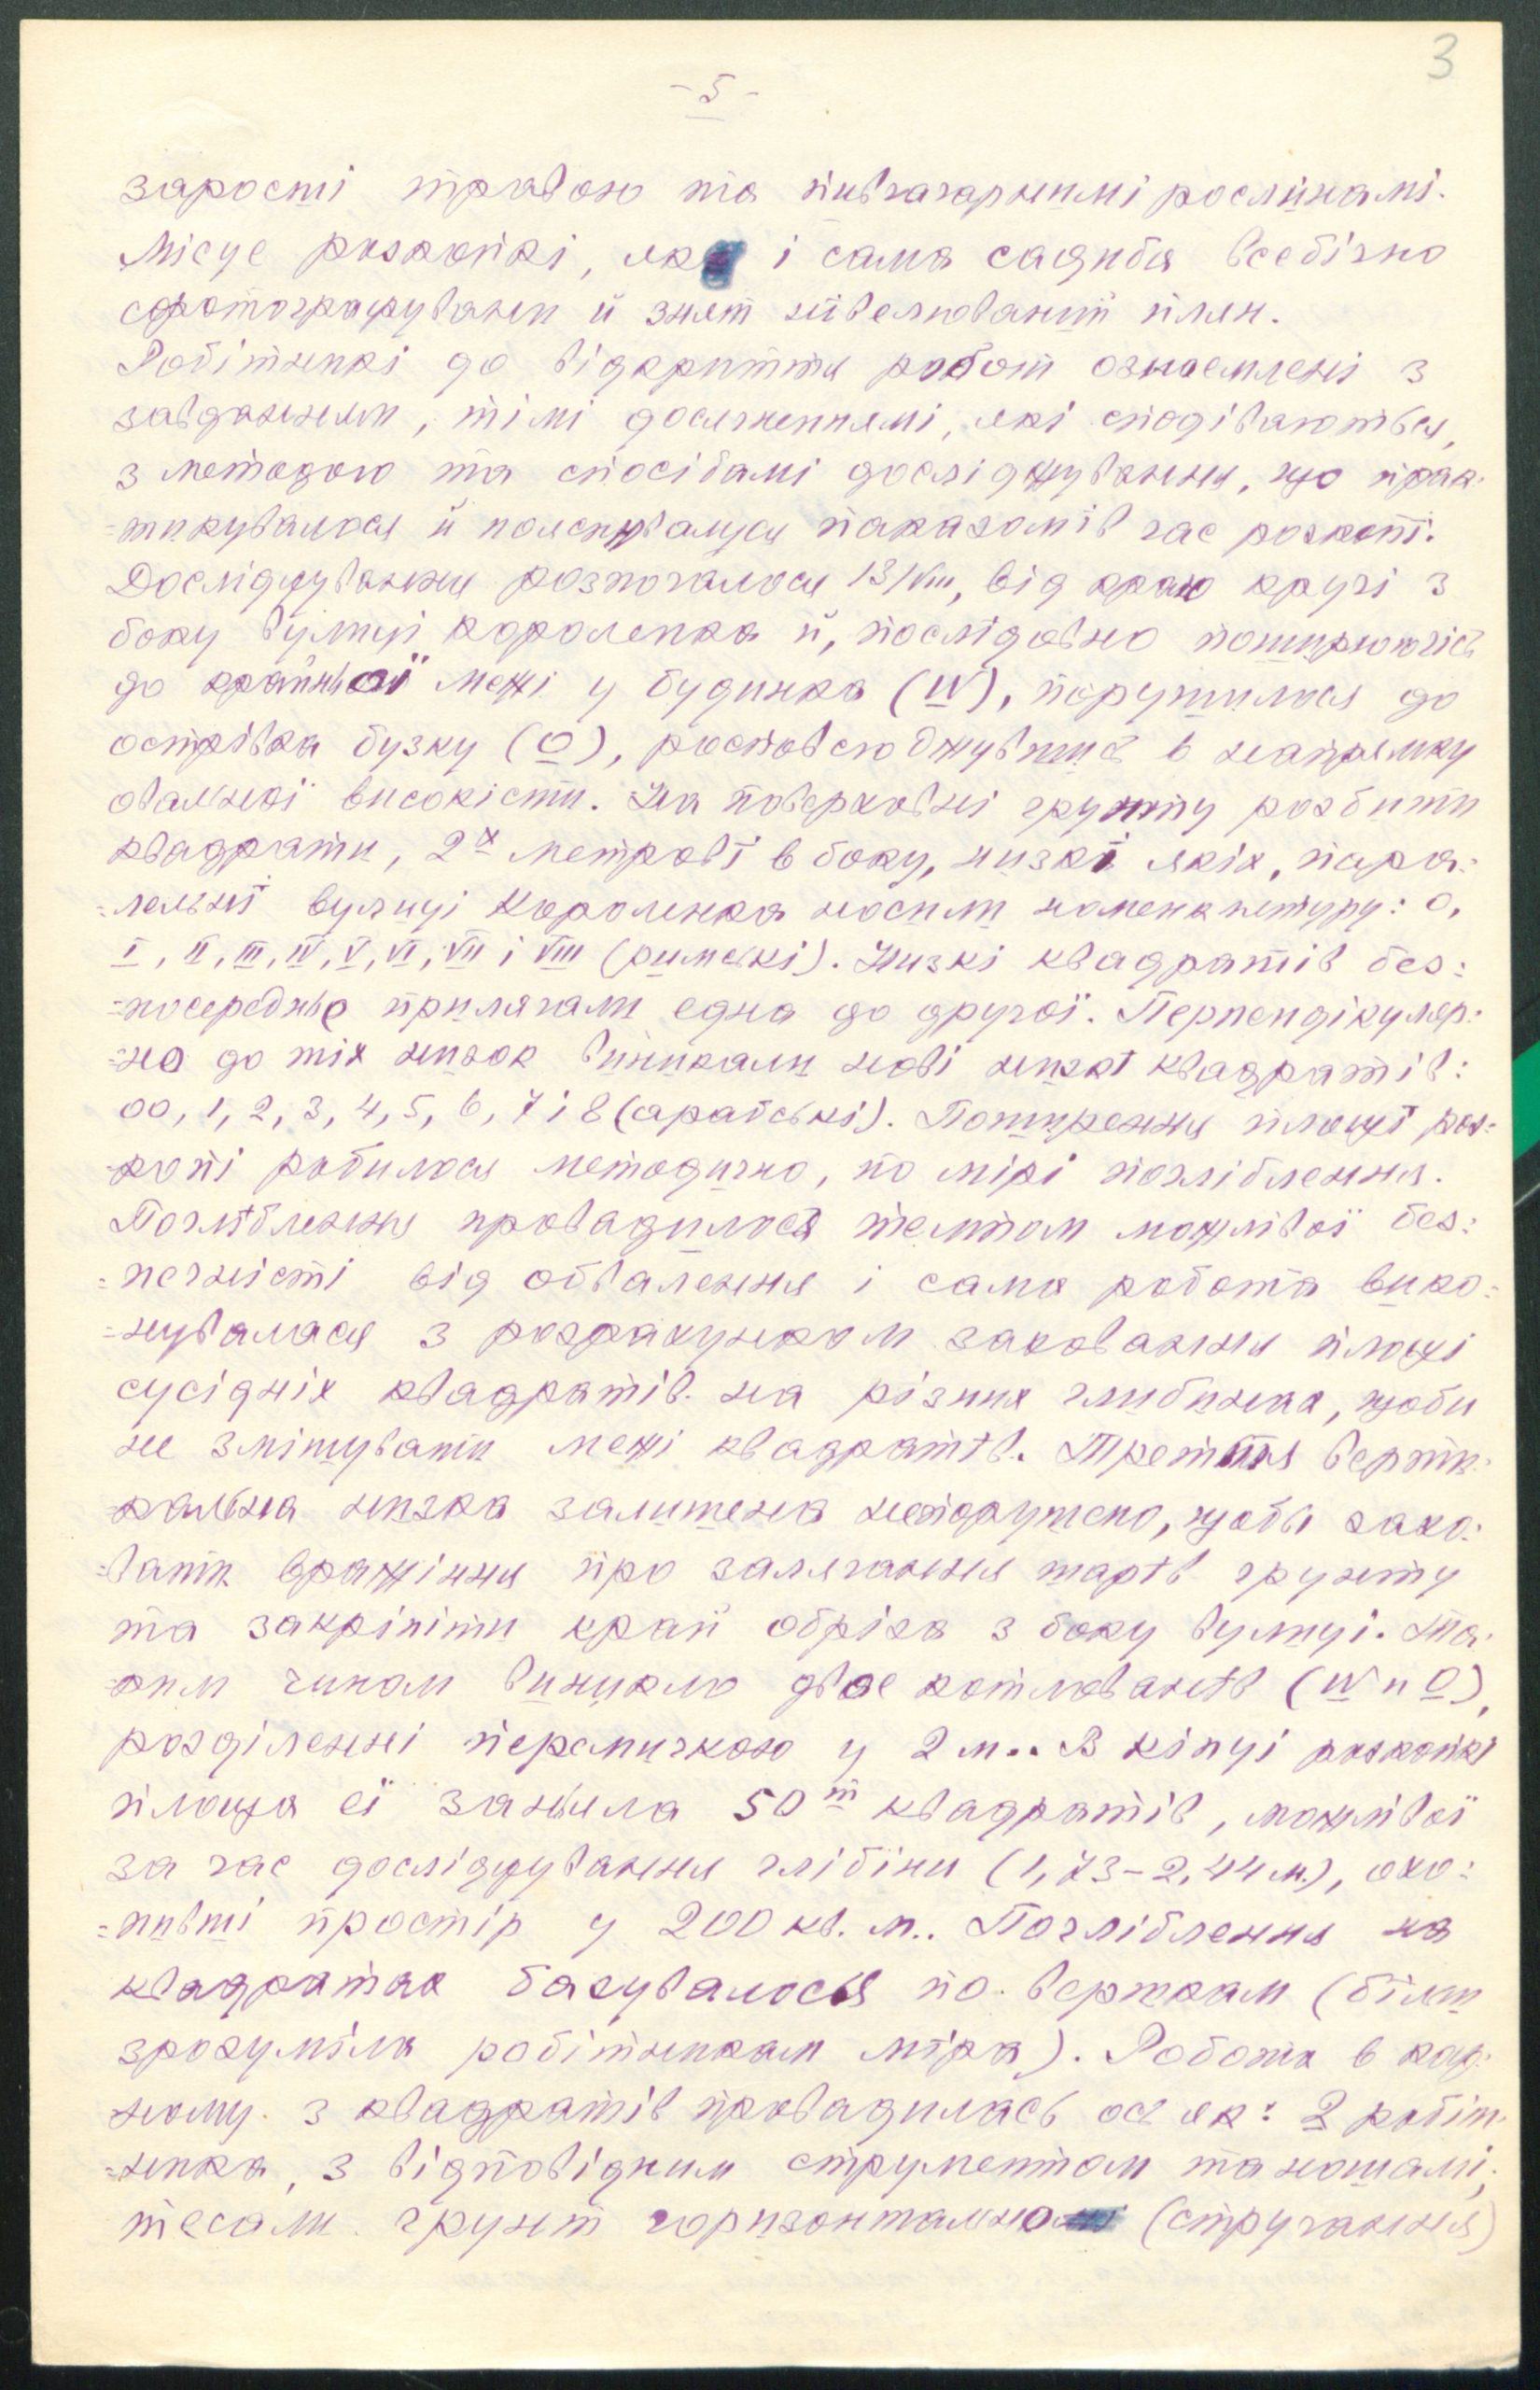 3
- 5 -
зарості травою та півчагарнимі рослинамі.
Місце розкопкі, як і сама садиба всебічно
сфотографувани й знят нівельованит плян.
Робітникі до відкриття робот ознаемлені з
завданням, тімі досягненнямі, які сподіваються,
з методою та способамі досліджування, що прак-
=тикувалося й пояснувалися показом під час розкопі.
Досліджування розпочалося 13/VIII, від краю кручі з
боку вулиці Короленка й, послідовно поширюючісь
до крайньої межі у будинка (W), порушилося до
острівка бузку (O), росповсюджувшись в напрямку
овальної високісти. На поверховні грунту розбити
квадрати, 2х метрові в боку, низкі якіх, пара-
=лельні вулиці Короленка носили номенклетуру: 0,
I, II, III, IV, V, VI, VII і VIII (римські). Низкі квадратів без=
=посередньо прилягали една до другої. Перпендікуляр-
=но до тіх низок виникали нові низкі квадратів:
00, 1, 2, 3, 4, 5, 6, 7 і 8 (арабські). Поширення площі роз=
=копі робилося методично, по мірі поглібления.
Поглібления провадилося темпом можлівої без=
=печністі від обвалення і сама робота вико=
=нувалася з розрахунком заховання площі
сусідніх квадратів на різних глибинах, щоби
не змішувати межі квадратів. Третья верти-
=кальна низка залишена непорушено, щобы захо-
=вати вражіння про залягання шарів грунту
та закріпіти край обріза з боку вулиці. Та-
=ким чином виникло двое котлованів (W и O),
розділенні перемичкою у 2 м.. В кінці розкопкі
площа еї заньяла 50т квадратів, можлівої
за час досліджування глібіни (1,73-2,44 м.), охо=
=пивші простір у 200 кв. м.. Поглібления на
квадратах базувалося по вершкам (більш
зрозуміла робітникам міра). Робота в кож-
ному з квадратів провадилась ось як: 2 робіт-
=ника, з відповідним струментом та ношамі,
тесали грунт горизонтально (стругання)